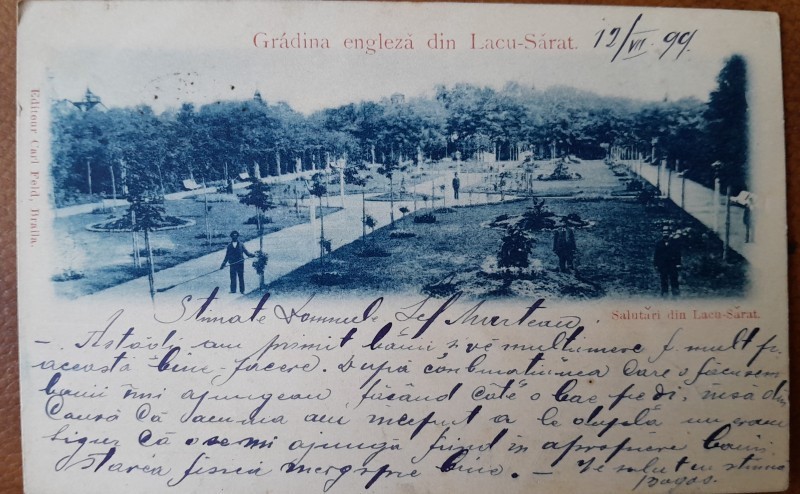 Grádina engleză din Lacu-Sărat.
12/VII. 99
Editour Carl Feld, Braila.
Salutări din Lacu-Sărat.
Stimate Domnule Șef
Astădi am primit banii și vĕ multumesc f. mult p.
aceastā bine-facere. După combinatiunea care o făcusem
banii îmi ajungeau, luând câte o bae pe di, însă din
causă că acuma am inceput a le dupla nu eram
sigur că o se-mi ajungă fiind in apropiere banii.
Starea fisică merge spre bine. — Vĕ salut cu stima